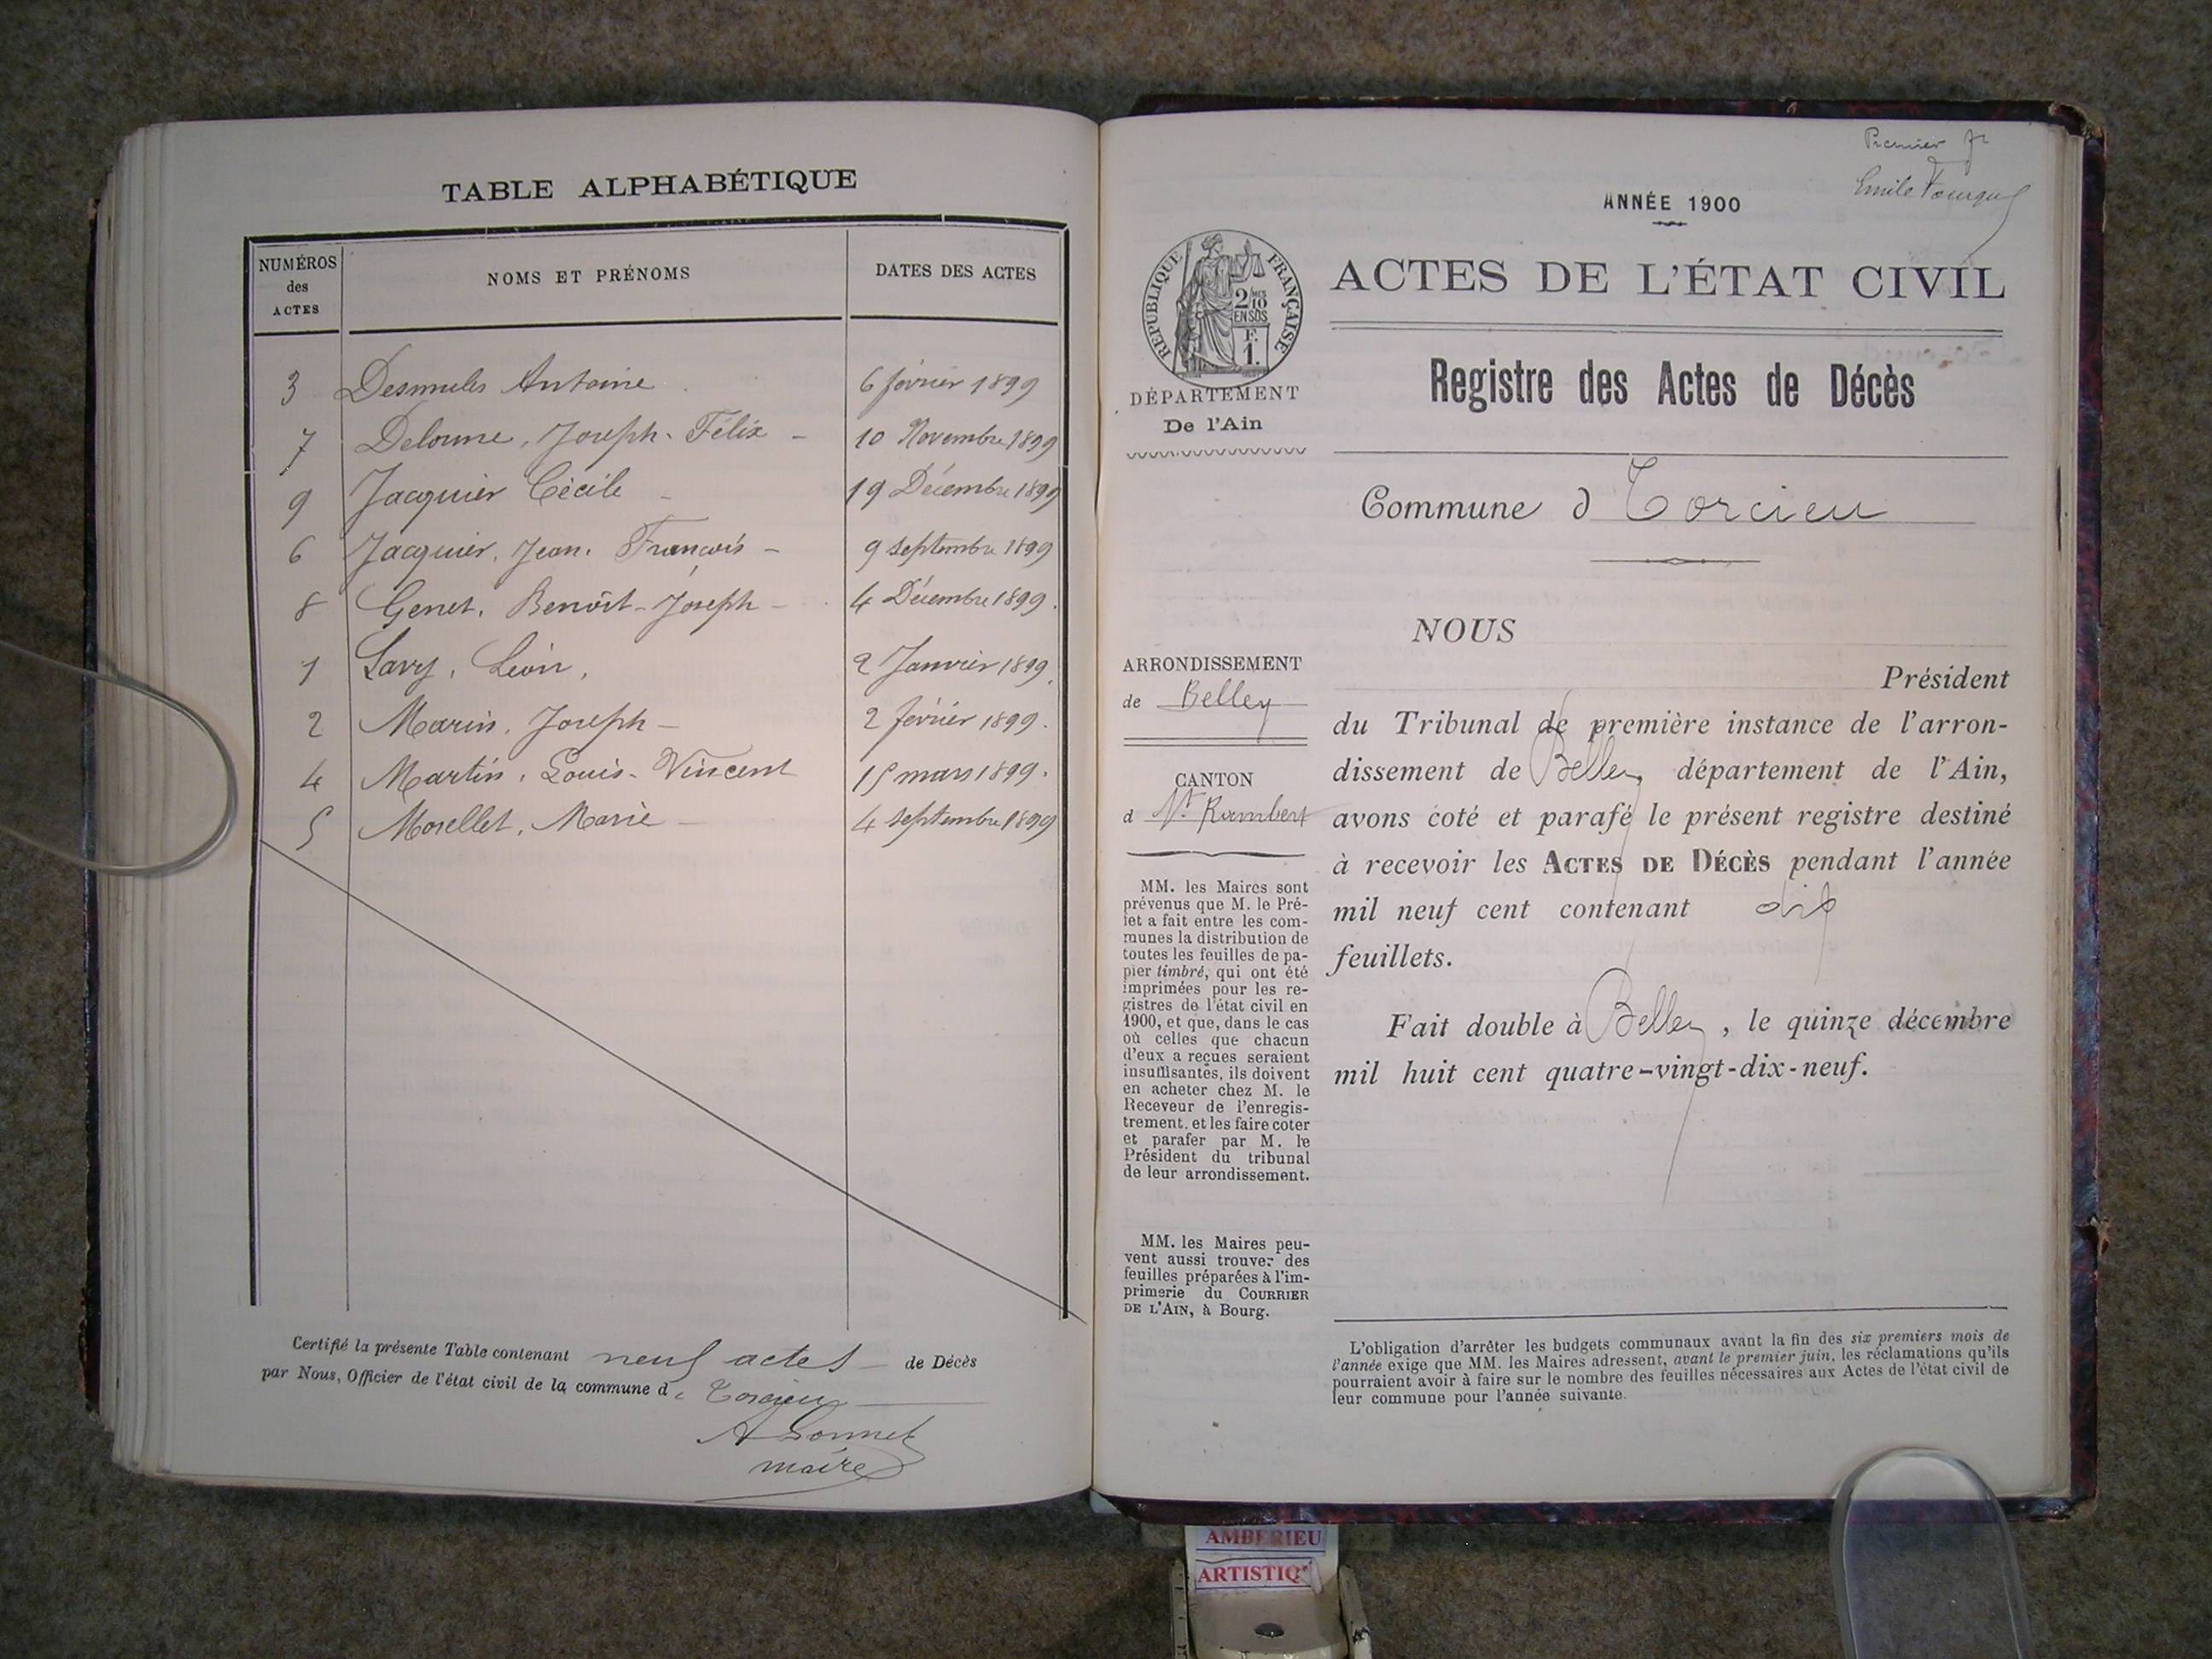 TABLE ALPHABÉTIQUE
NUMÉROS des ACTES
NOMS ET PRÉNOMS
DATES DES ACTES
3 Desmules Antoine 6 février 1899
7 Delorme, Joseph-Félix 10 Novembre 1899
9 Jacquier Cécile 19 Décembre 1899
6 Jacquier, Jean-François 9 septembre 1899
8 Genet, Benoît-Joseph 4 Décembre 1899.
1 Savy, Léon, 2 Janvier 1899.
2 Marin, Joseph 2 février 1899.
4 Martin, Louis-Vincent 15 mars 1899.
5 Morellet, Marie 4 septembre 1899
Certifié la présente Table contenant neuf actes de Décès
par Nous, Officier de l'état civil de la commune de Torcieu
A Bonnet
maire
Premier
Emile
ANNÉE 1900
ACTES DE L'ÉTAT CIVIL
Registre des Actes de Décès
Commune d Torcieu
RÉPUBLIQUE FRANÇAISE
2 10MES
EN SUS
F.
1.
DÉPARTEMENT
De l'Ain
ARRONDISSEMENT
de Belley
CANTON
d St Rambert
MM. les Maires sont
prévenus que M. le Pré-
fet a fait entre les com-
munes la distribution de
toutes les feuilles de pa-
pier timbré, qui ont été
imprimées pour les re-
gistres de l'état civil en
1900, et que, dans le cas
où celles que chacun
d'eux a reçues seraient
insuffisantes, ils doivent
en acheter chez M. le
Receveur de l'enregis-
trement, et les faire coter
et parafer par M. le
Président du tribunal
de leur arrondissement.
MM. les Maires peu-
vent aussi trouver des
feuilles préparées à l'im-
primerie du COURRIER
DE L'AIN, à Bourg.
NOUS
Président
du Tribunal de première instance de l'arron-
dissement de Belley, département de l'Ain,
avons coté et parafé le présent registre destiné
à recevoir les ACTES DE DÉCÈS pendant l'année
mil neuf cent contenant dix
feuillets.
Fait double à Belley, le quinze décembre
mil huit cent quatre-vingt-dix-neuf.
L'obligation d'arrêter les budgets communaux avant la fin des six premiers mois de
l'année exige que MM. les Maires adressent, avant le premier juin, les réclamations qu'ils
pourraient avoir à faire sur le nombre des feuilles nécessaires aux Actes de l'état civil de
leur commune pour l'année suivante.
AMBERIEU
ARTISTIQ'